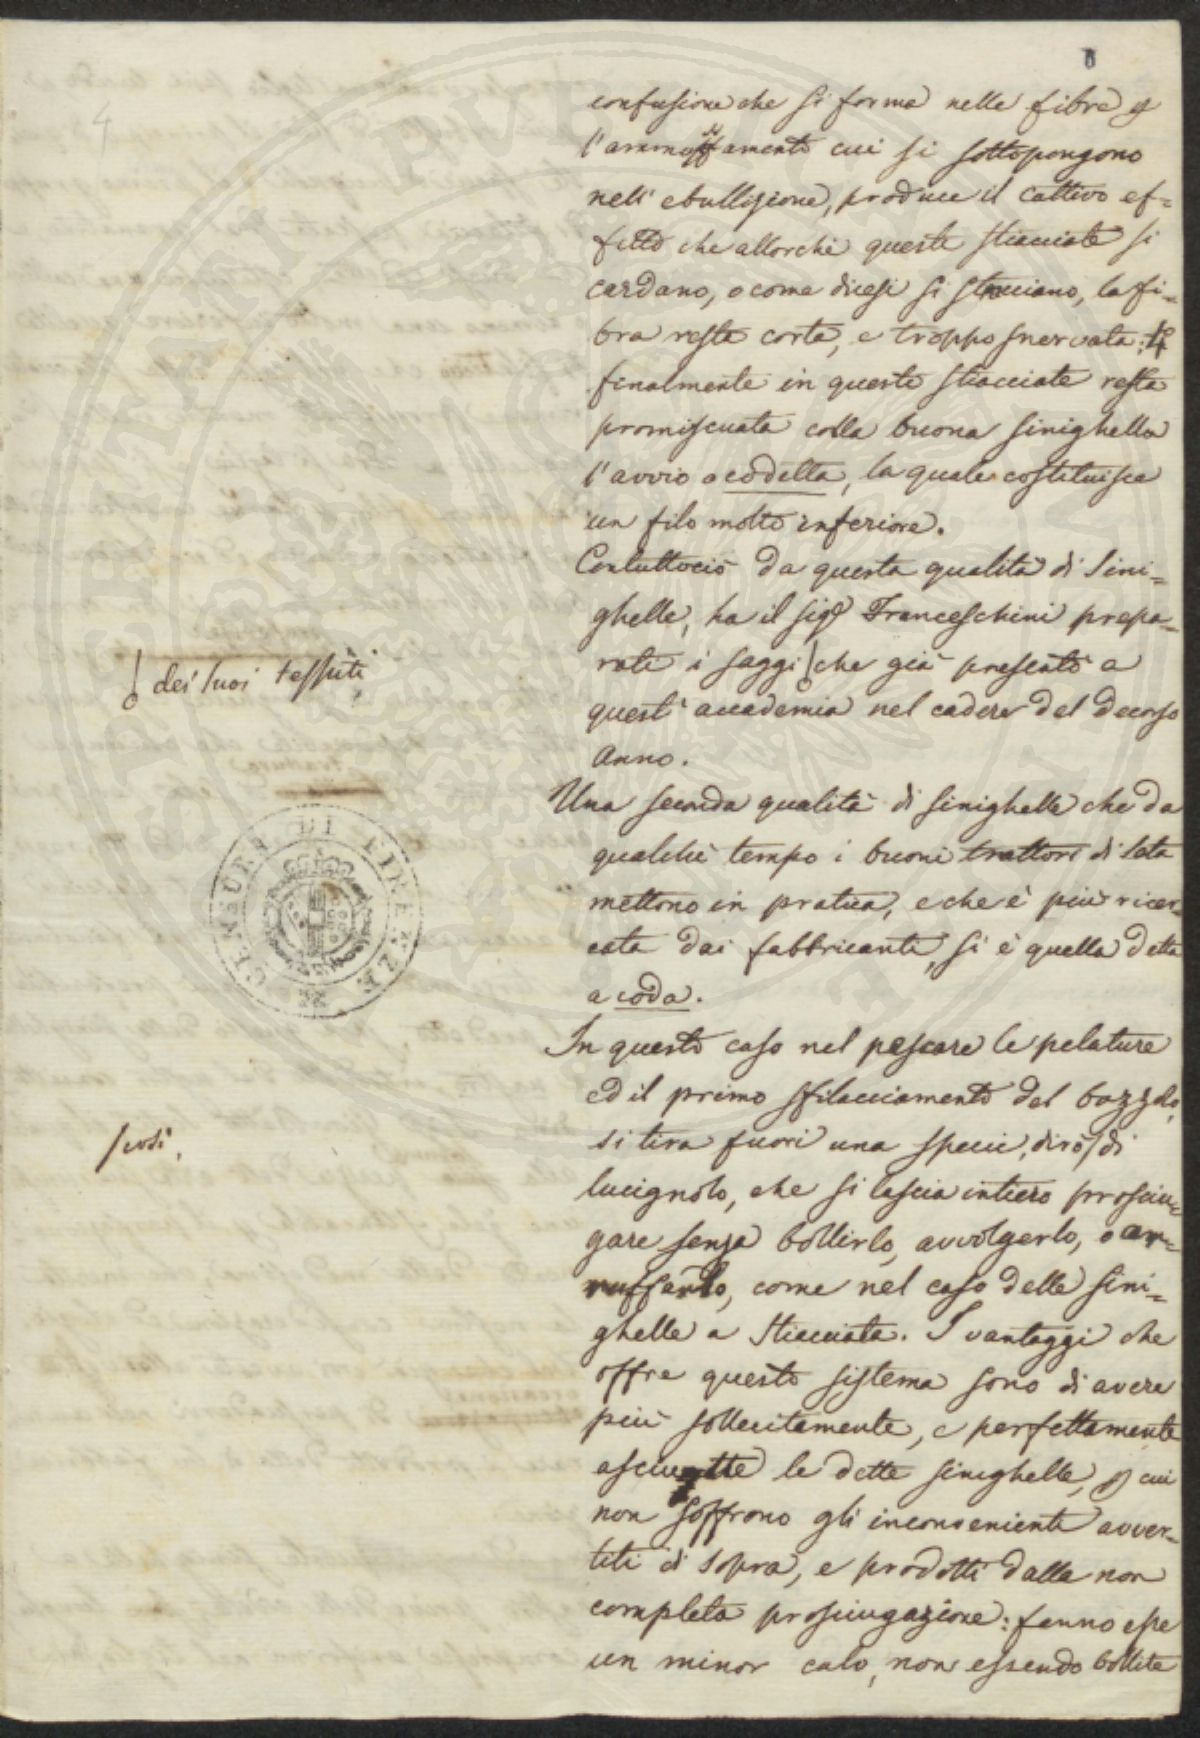 confusione che si forma nelle fibre p
l'ammoffamento cui si sottopongono
nell'ebullizione, produce il cattivo ef=
fetto che allorchè queste stiacciate si
cardano, o come dicesi si stracciano, la fi=
bra resta corta, e troppo snervata:
finalmente in queste stiacciate resta
promiscuata colla buona sinighella
l'avvio o codetta, la quale costituisce
un filo molto inferiore.
Contuttociò da questa qualità di Sini=
ghelle, ha il sigr Franceschini prepa=
rati i saggi che già presentò a
dei suoi tessuti,
quest'accademia nel cadere del decorso
anno.
Una seconda qualità di sinighelle che da
qualche tempo i buoni trattori di seta
mettono in pratica, e che è più ricer=
cata dai fabbricanti, si è quella detta
a coda.
CENSURA DI FIRENZE
In questo caso nel pescare le pelature
ed il primo sfilacciamento del bozzolo,
si tira fuori una specie, dirò di
così,
lucignolo, che si lascia intiero prosciu=
gare senza bollirlo, avvolgerlo, o ar=
ruffarlo, come nel caso delle sini=
ghelle a stiacciata. I vantaggi che
offre questo sistema sono di avere
più sollecitamente, e perfettamente
asciutte le dette sinighelle, p cui
non soffrono gli inconvenienti avver=
titi di sopra, e prodotti dalla non
completa prosciugazione: fanno esse
un minor calo, non essendo bollite